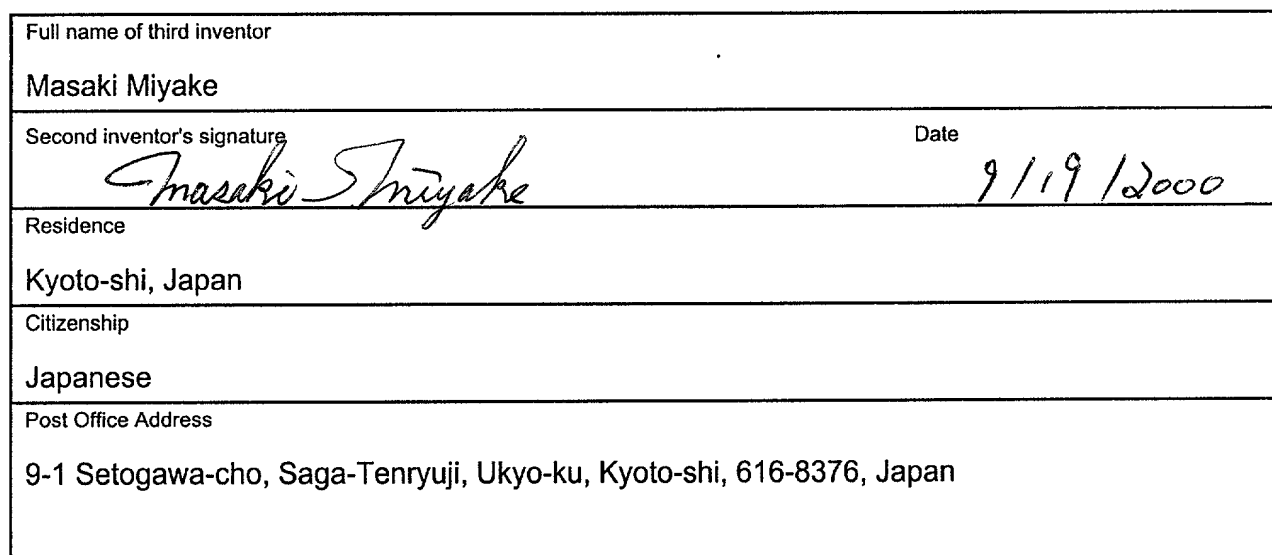 Full name of third inventor
Masaki Miyake
Second inventor's signature Date
Masaki Miyake 9/19/2000
Residence
Kyoto-shi, Japan
Citizenship
Japanese
Post Office Address
9-1 Setogawa-cho, Saga-Tenryuji, Ukyo-ku, Kyoto-shi, 616-8376, Japan